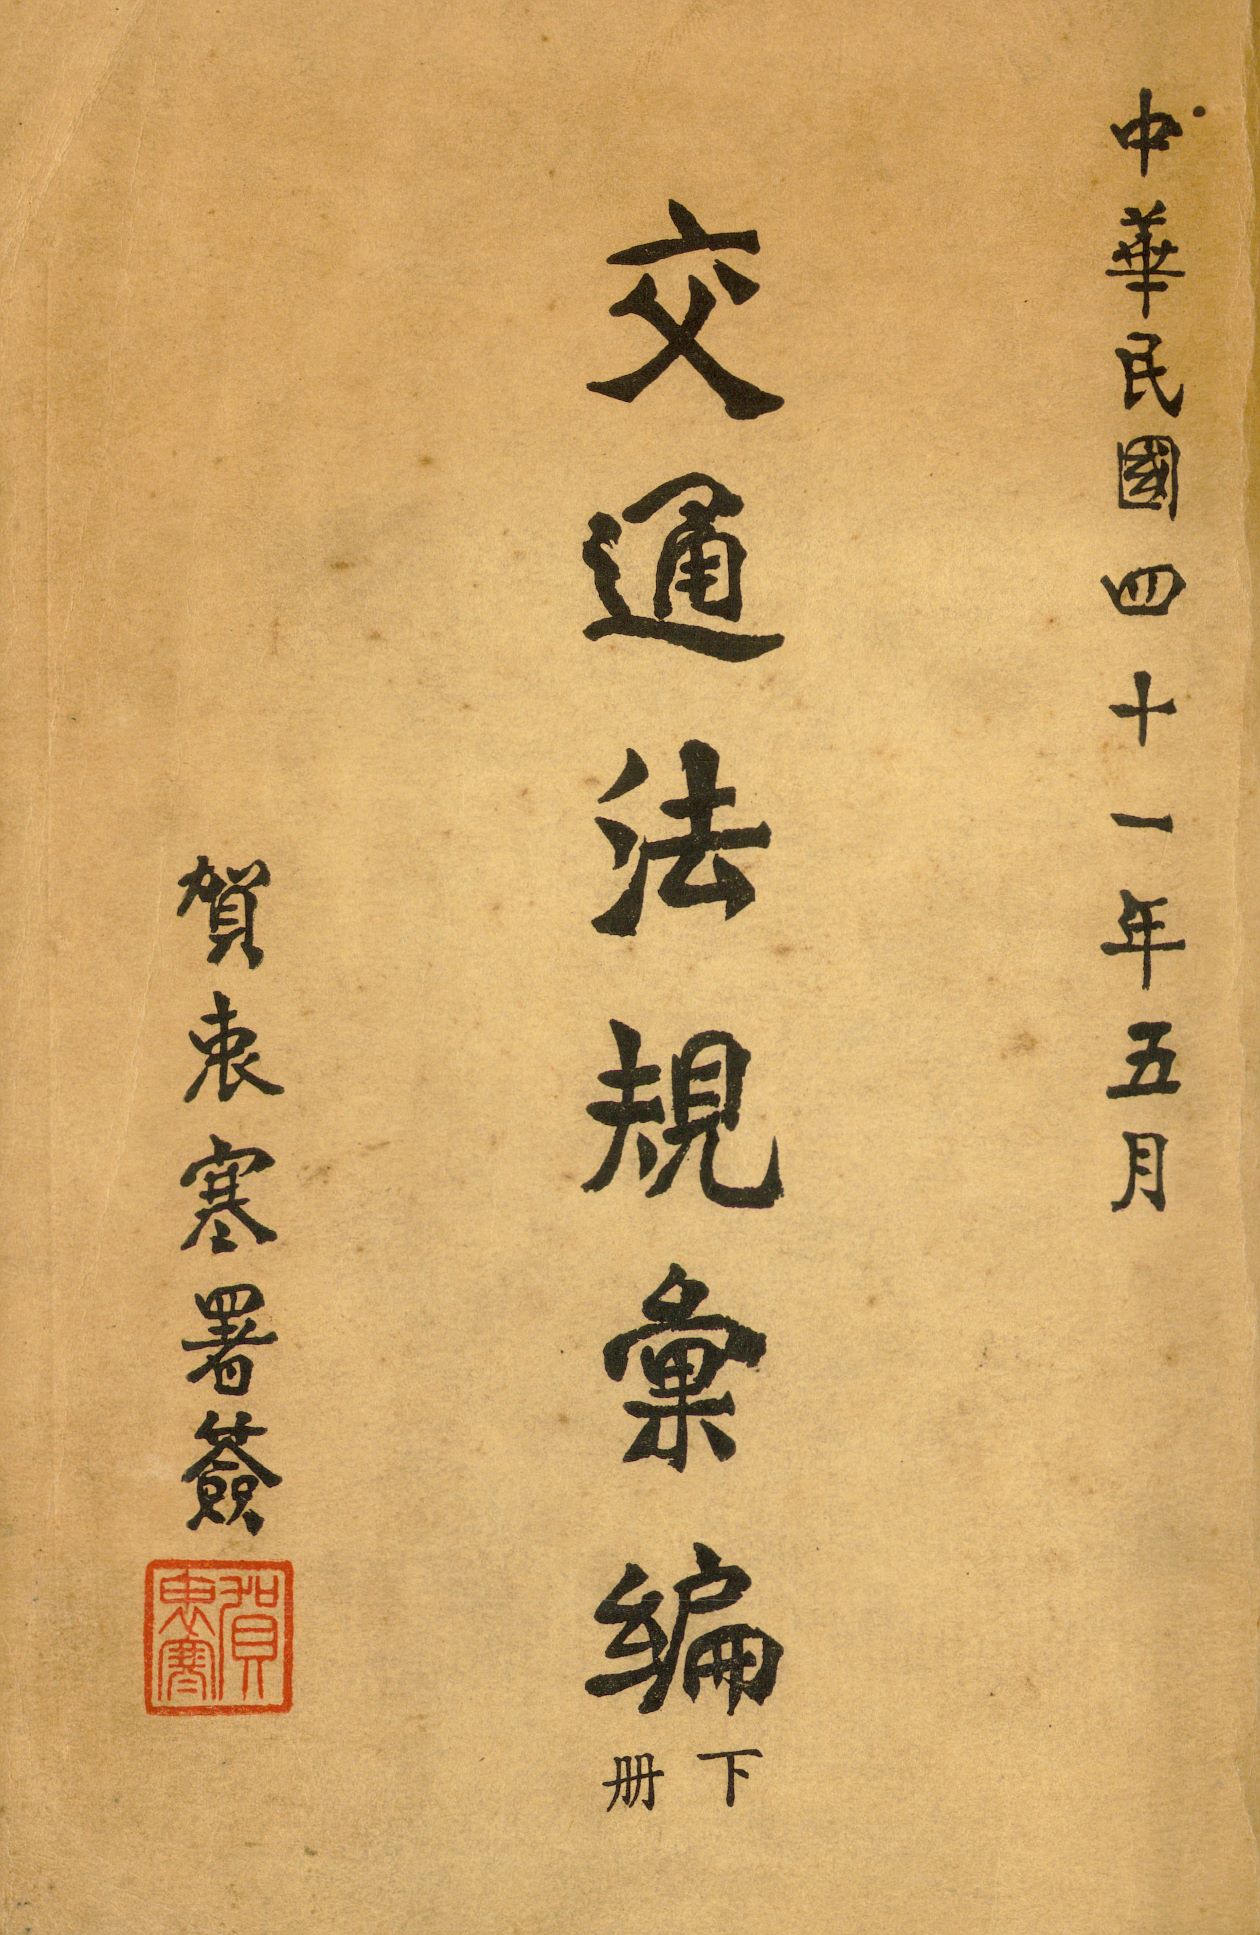 中華民國四十一年五月
交通法規彙編
下册
賀衷寒署簽
賀衷寒